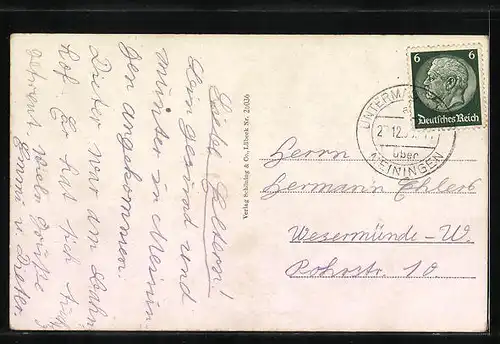 Liebe Eltern!
Bin gesund und
munter in Meinin-
gen angekommen.
Dieter war am Bahn-
hof. Er hat sich
gefreut. Viele Grüße
Emmi u. Dieter.
Verlag Schöning & Co., Lübeck Nr. 21036
6 6
Deutsches Reich
UNTERMA
2 12
über
MEININGEN
Herrn
Hermann Ehlers
Wesermünde-W.
Pohrstr. 10.